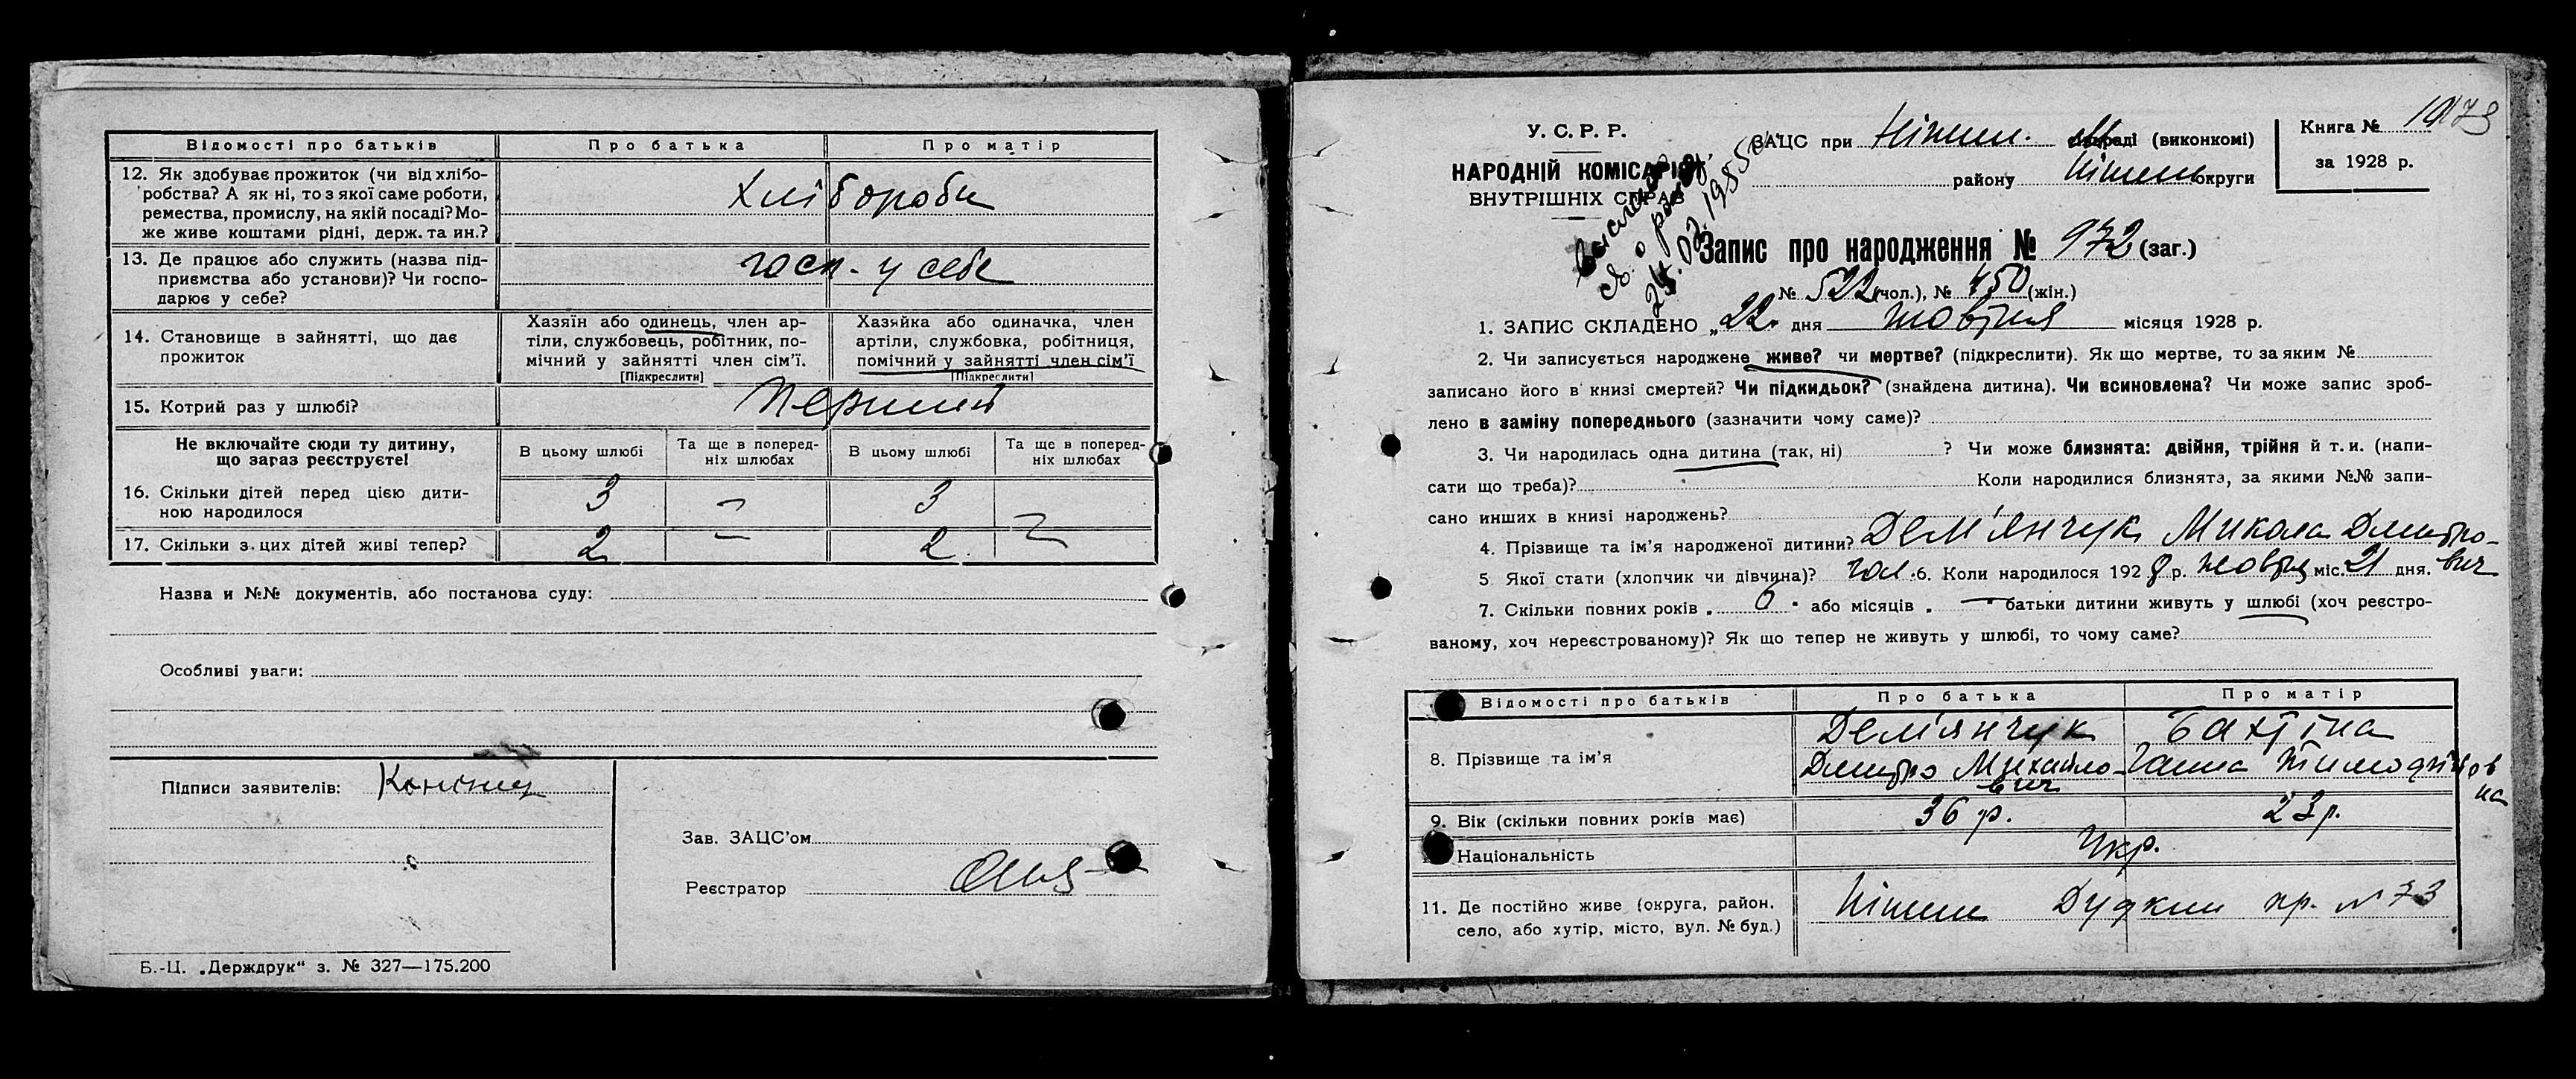 Відомості про батьків Про батька Про матір
12. Як здобуває прожиток (чи від хлібо-
робства? А як ні, то з якої саме роботи,
ремества, промислу, на якій посаді? Мо-
же живе коштами рідні, держ. та ин.?
Хлібороби
13. Де працює або служить (назва під-
приємства або установи)? Чи госпо-
дарює у себе?
госп. у себе
14. Становище в зайнятті, що дає
прожиток
Хазяїн або одинець, член ар-
тіли, службовець, робітник, по-
мічний у зайнятті член сім'ї.
[Підкреслити]
Хазяйка або одиначка, член
артіли, службовка, робітниця,
помічний у зайнятті член сім'ї
[Підкреслити]
15. Котрий раз у шлюбі? Перший
Не включайте сюди ту дитину,
що зараз реєструєте!
В цьому шлюбі
Та ще в поперед-
ніх шлюбах
В цьому шлюбі
Та ще в поперед-
ніх шлюбах
16. Скільки дітей перед цією дити-
ною народилося
3 — 3 —
17. Скільки з цих дітей живі тепер? 2 — 2 —
Назва и №№ документів, або постанова суду:
Особливі уваги:
Підписи заявителів:
Зав. ЗАЦС'ом
Реєстратор
Б.-Ц. „Держдрук“ з. № 327—175.200
У. С. Р. Р.
НАРОДНІЙ КОМІСАРІЯТ
ВНУТРІШНІХ СПРАВ
ЗАЦС при Ніжин. (виконкомі)
району Ніжин округи
Книга №
за 1928 р.
Запис про народження № 972 (заг.)
№ 522 (чол.), № 450 (жін.)
1. ЗАПИС СКЛАДЕНО „22“ дня жовтня місяця 1928 р.
2. Чи записується народжене живе? чи мертве? (підкреслити). Як що мертве, то за яким №
записано його в книзі смертей? Чи підкидьок? (знайдена дитина). Чи всиновлена? Чи може запис зроб-
лено в заміну попереднього (зазначити чому саме)?
3. Чи народилась одна дитина (так, ні) ? Чи може близнята: двійня, трійня й т. и. (напи-
сати що треба)? Коли народилися близнята, за якими №№ запи-
сано инших в книзі народжень?
4. Прізвище та ім'я народженої дитини? Дем'янчук Микола Дмитро-
вич
5. Якої стати (хлопчик чи дівчина)? чол. 6. Коли народилося 1928 р. жовтня міс. 21 дня.
7. Скільки повних років „ 6 “ або місяців „ — “ батьки дитини живуть у шлюбі (хоч реєстро-
ваному, хоч нереєстрованому)? Як що тепер не живуть у шлюбі, то чому саме?
Відомості про батьків Про батька Про матір
8. Прізвище та ім'я
Дем'янчук
Дмитро Михайло-
вич
Ганна Тимофіїов
на
9. Вік (скільки повних років має) 36 р. 23 р.
Національність Укр.
11. Де постійно живе (округа, район,
село, або хутір, місто, вул. № буд.)
Ніжин Дудкин пр. № 73